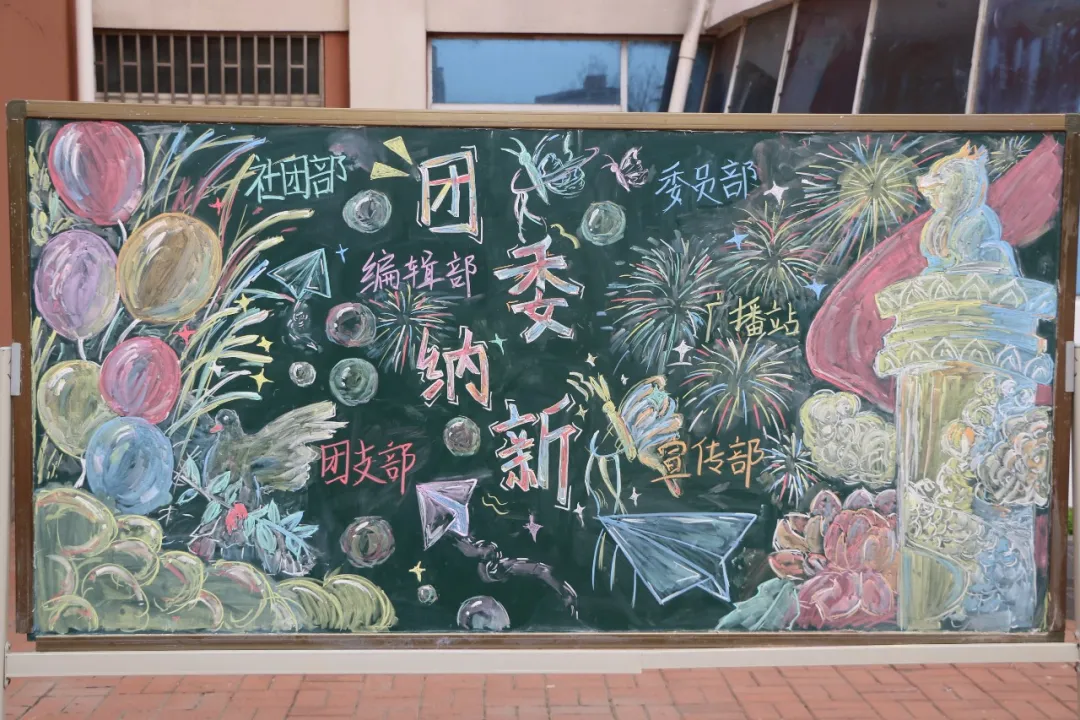 团委纳新
社团部
委员部
编辑部
广播站
团支部
宣传部